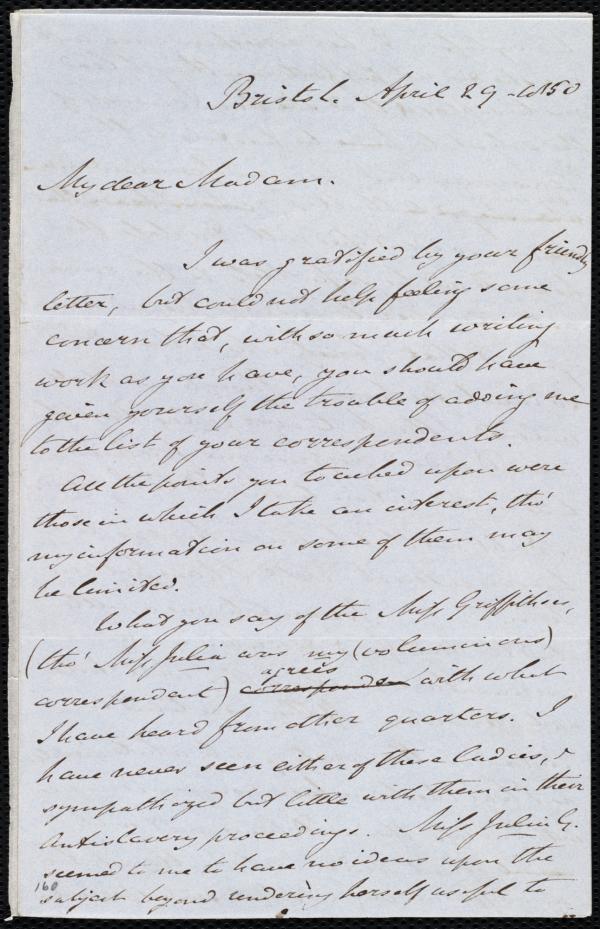 Bristol. April 29 - 1850
My dear Madam.
I was gratified by your friendly
letter, but could not help feeling some
concern that, with so much writing
work as you have, you should have
given yourself the trouble of adding me
to the list of your correspondents.
All the points you touched upon were
those in which I take an interest, tho'
my information on some of them may
be limited.
What you say of the Miss Griffiths's,
(tho' Miss Julia was my (voluminous)
agrees
correspondent) corresponded with what
I have heard from other quarters. I
have never seen either of these ladies, &
sympathized but little with them in their
antislavery proceedings. Miss Julia G.
seemed to me to have no ideas upon the
subject beyond rendering herself useful to
160